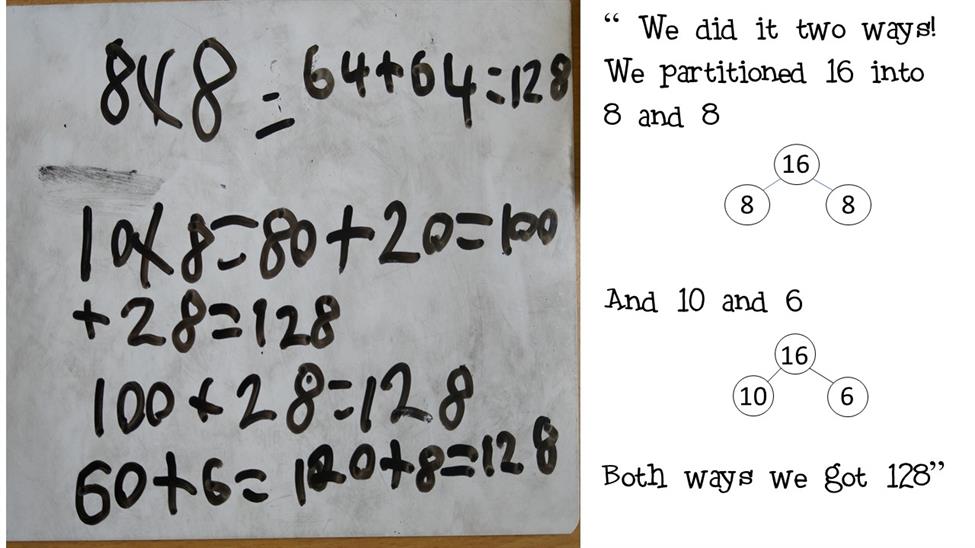 8×8 = 64+64=128
10×8=80+20=100
+28=128
100+28=128
60+6= 120+8=128
“ We did it two ways!
We partitioned 16 into
8 and 8
16
8 8
And 10 and 6
16
10 6
Both ways we got 128”